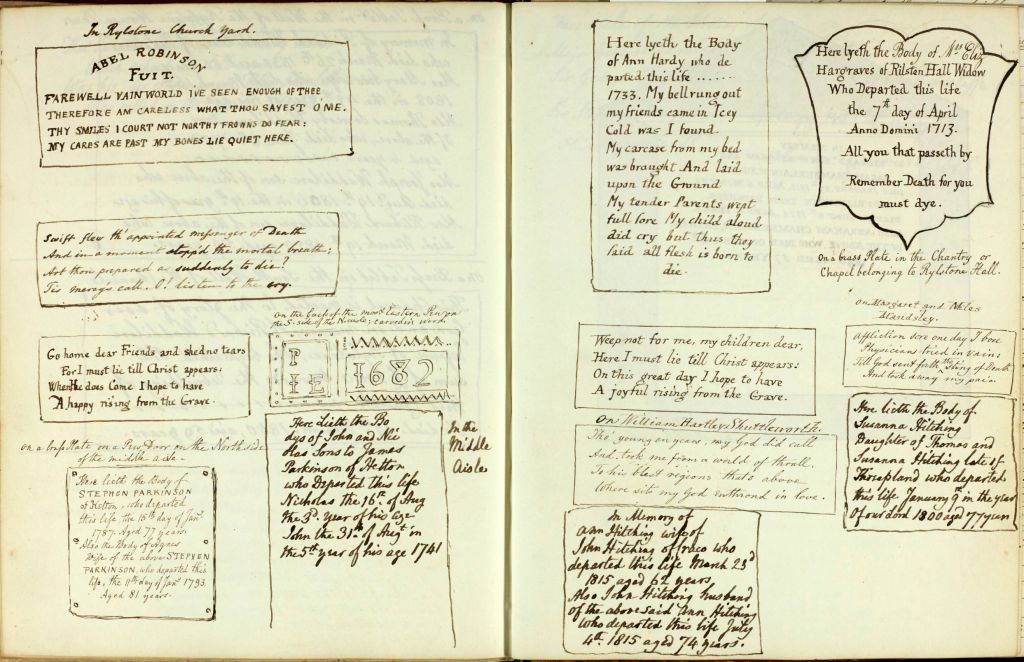 In Rylstone Church Yard.
ABEL ROBINSON
FUIT.
FAREWELL VAIN WORLD I'VE SEEN ENOUGH OF THEE
THEREFORE AM CARELESS WHAT THOU SAYEST O'ME.
THY SMILES I COURT NOT NOR THY FROWNS DO FEAR:
MY CARES ARE PAST MY BONES LIE QUIET HERE.
Swift flew th' appointed messenger of Death
And in a moment stopp'd the mortal breath;
Art thou prepared as suddenly to die?
Tis mercy's call. O! listen to the cry.
On the Back of the most Eastern Pew on
the S. side of the Nave; carved in wood.
Go home dear Friends and shed no tears
For I must lie till Christ appears:
When He does Come I hope to have
A happy rising from the Grave.
P
I E
1682
on a brass Plate on a Pew Door, on the North side
of the middle aisle.
Here lieth the Body of
STEPHEN PARKINSON
of Hetton, who departed
this life the 15th day of Jany
1787. Aged 77 years.
Also the Body of Agnes
Wife of the above STEPHEN
PARKINSON, who departed this
life, the 11th day of Jany 1793.
Aged 81 years.
Here Lieth the Bo
dys of John and Nic
Holas Sons to James
Parkinson of Hetton
who Departed this life
Nicholas the 16th of Aug
the 3d. year of his age
John the 31st of Augst in
the 5th year of his age 1741
In the
Middle
Aisle
Here lyeth the Body
of Ann Hardy who de
parted this life .......
1733. My bell rung out
my friends came in Icey
Cold was I found
My carcase from my bed
was brought And laid
upon the Ground
My tender Parents wept
full sore My child aloud
did cry but thus they
said all flesh is born to
die.
Here lyeth the Body of Mrs Eliz
Hargraves of Rilston Hall Widow
Who Departed this life
the 7th day of April
Anno Domini 1713.
All you that passeth by
Remember Death for you
must dye.
On a brass Plate in the Chantry or
Chapel belonging to Rylstone Hall.
Weep not for me, my children dear,
Here I must lie till Christ appears:
On this great day I hope to have
A joyful rising from the Grave.
On Margaret and Miles
Mandsley.
Affliction sore one day I bore
Physicians tried in vain;
Till God sent forth the Sting of Death
And took away my pain.
On William Hartley Shuttleworth.
Tho' young in years, my God did call
And took me from a world of thrall.
To his blest regions that's above
Where sits my God enthron'd in love.
Here lieth the Body of
Susanna Hitching
Daughter of Thomas and
Susanna Hitching late of
Thorpland who departed
this life January 9th in the year
Of our Lord 1800 aged 77 years
In Memory of
Ann Hitching wife of
John Hitching of Draco who
departed this life March 23d
1815 aged 62 years
Also John Hitching husband
of the above said Ann Hitching
who departed this life July
4th. 1815 aged 74 years.